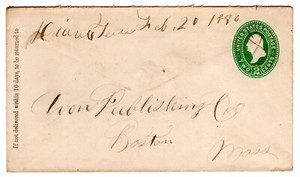 Feb. 20 1890
UNITED STATES POSTAGE
TWO CENTS
2
If not delivered within 10 days, to be returned to
Publishing Co
Boston
Mass